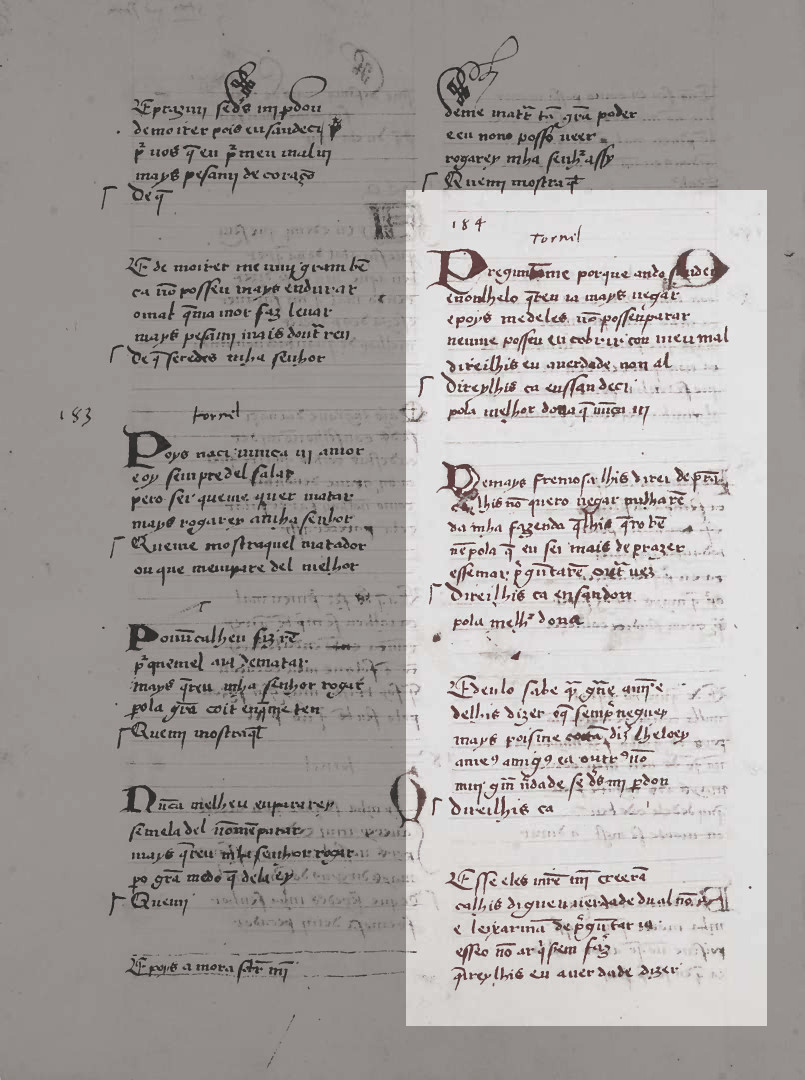 E prazmi se ds mi pdou
de moirer pois en sandeci
p̃ uos q̃ eu p̃ meu mal ui
mays pesami de coraço
De q̃
E de moirer me uuy gram bẽ
ca nõ possen mays endurar
o mal q̃ma mor faz leuar
mays pesami mais doutr̃ ren
De q̃ seredes mha senhor
183
tornel
Poys naci nunca ui amor
e oy sempre del falar
pero sei que me quer matar
mays rogarey a mha senhor
Que me mostraquel matador
ou que mempare del melhor
Pero nũcalheu fiz rẽ
p̃ que mel aia de matar
mays q̃reu mha senhor rogar
pola grã coit en q̃me ten
Quemi mostraq̃l
Nũca melheu enparrarey
se mela del nõ menparar
mays q̃reu mha senhor rogar
po grã medo q̃ dela ey
Quemi
E poys amor a sr̃r mi
deme matr̃ tã grã poder
e eu nono posso ueer
rogarey mha senhr̃ assy
Quemi mostraq̃l
184
tornel
Preguntanme por que ando sandeu
e nonlhelo q̃reu ia mays negar
e poys me deles nõ possenparar
nenme posseu encobrir con meu mal
direilhis eu a uerdade non al
Direylhis ca enssandeci
pola melhor dona q̃ nũca ui
De mays fremosa lhis direi de prã
ca lhis nõ quero negar nulha rẽ
da mha fazenda q̃ lhis q̃ro bẽ
nẽ pola q̃ eu sei mais de prazer
esse mar p̃gũtarẽ outr̃ uez
Direilhis ca ensandou
pola melhr̃ dona
delhis dizer o q̃ sempr̃ neguey
mays poisme coita diz lheloey
a meꝰ amigꝰ ca outrꝰ nõ
mui grã uerdade se ds mi pdon
direilhis ca
E sse eles mr̃e mi creerã
ca lhis digueu uerdade du al nõ
e leixarmã de p̃gũtar ia
e sseo nõ ar q̃sem faz
q̃reylhis eu a uerdade dizer